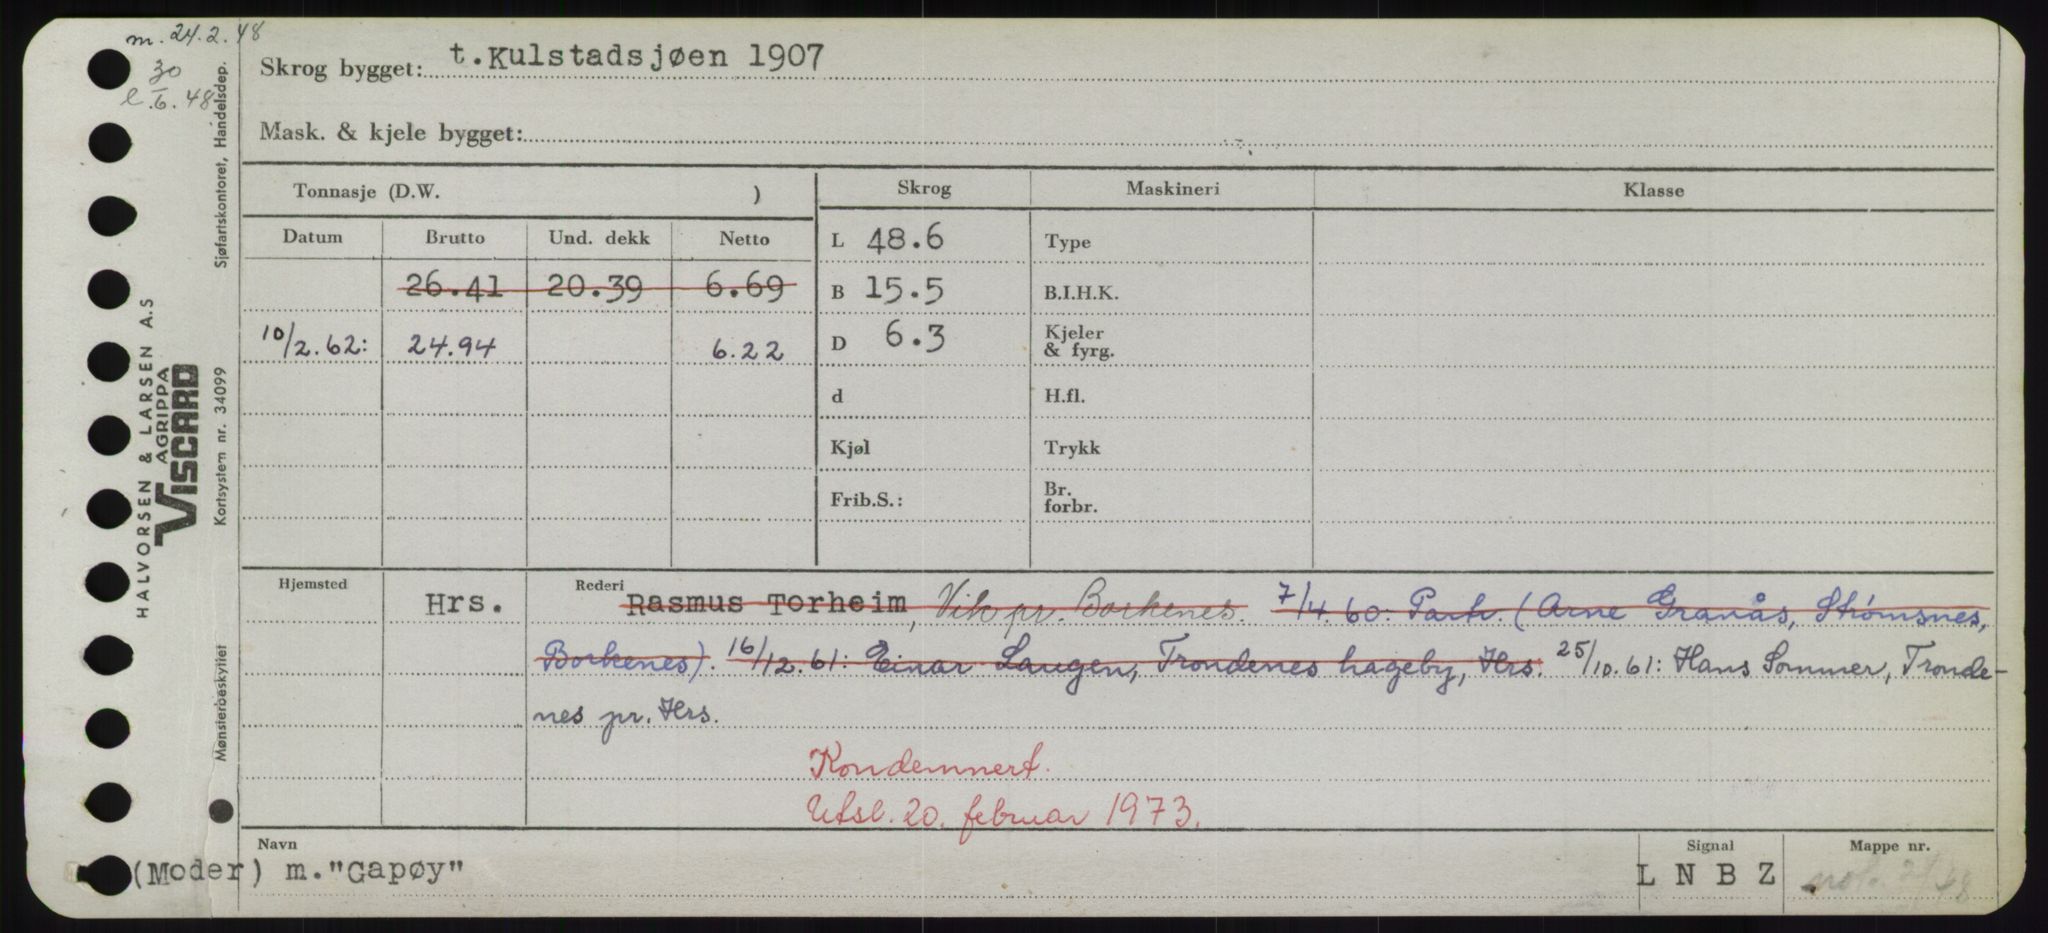 m. 24.2.48
30
e .6. 48
Skrog bygget: t. Kulstadsjøen 1907
Mask. & kjele bygget:
Tonnasje (D.W. )
Skrog
Maskineri
Klasse
Datum
Brutto
Und. dekk
Netto
L 48.6
Type
26.41 20.39 6.69
B 15.5
B.I.H.K.
10/2.62: 24.94 6.22
D 6.3
Kjeler
& fyrg.
d
H.fl.
Kjøl
Trykk
Frib.S.:
Br.
forbr.
Hjemsted
Hrs.
Rederi
Rasmus Torheim, Vik pr. Borkenes. 7/4.60: Partr. (Arne Granås, Strømsnes,
Borkenes). 16/12.61: Einar Laugen, Trondenes hageby, Hrs. 25/10.61: Hans Sommer, Tronde-
nes pr. Hrs.
Kondemnert.
Utsl. 20. februar 1973.
Navn
(Moder) m."Gapøy"
Signal
L N B Z
Mappe nr.
HALVORSEN & LARSEN A.S
AGRIPPA
VISCARD
Sjøfartskontoret, Handelsdep.
Kortsystem nr. 34099
Mønsterbeskyttet